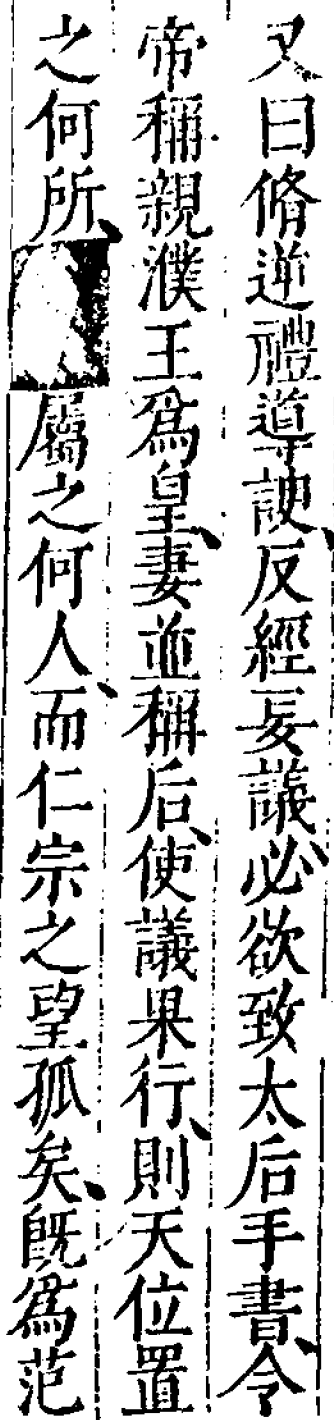 又曰脩逆禮導諛、反經妄議、必欲致太后手書、令
帝稱親濮王爲皇、妻並稱后、使議果行、則天位置
之何所、屬之何人、而仁宗之望孤矣、旣爲范